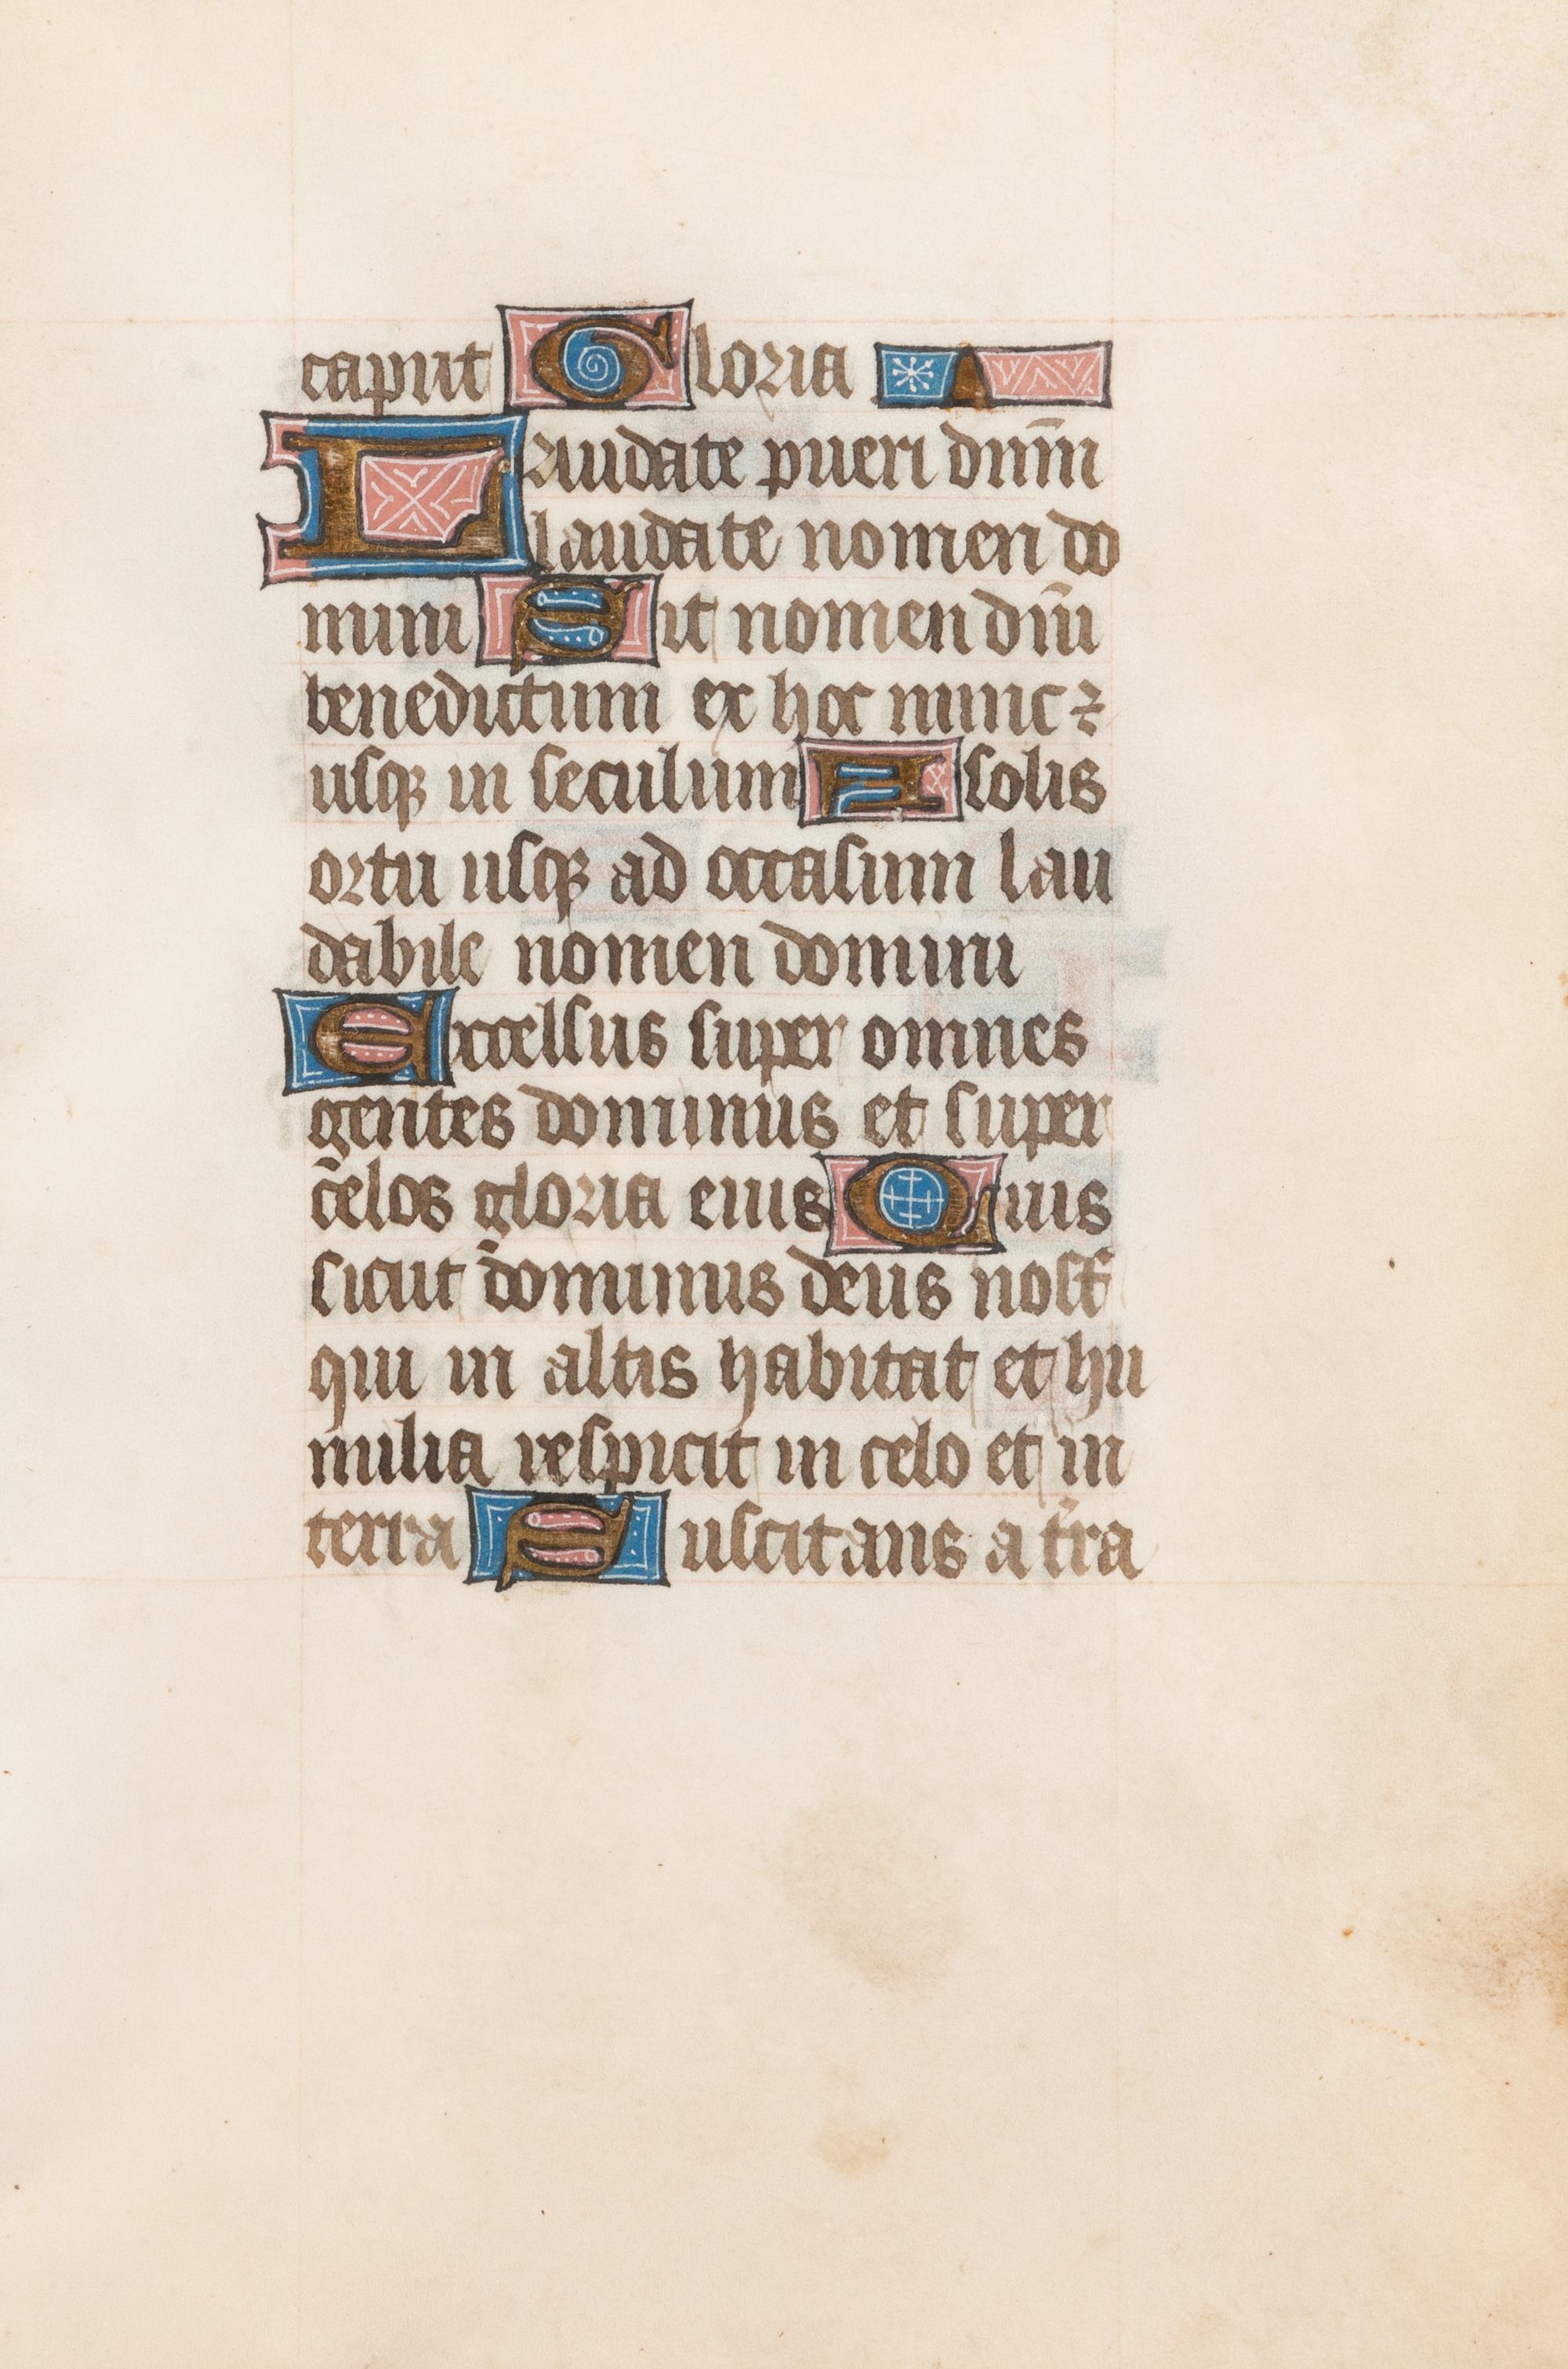 caput Gloria
Laudate pueri dnm̄
laudate nomen do
mini Sit nomen dnī
benedictum ex hoc nunc ⁊
usqꝫ in seculum A solis
ortu usqꝫ ad occasum lau
dabile nomen domini
Excelsus super omnes
gentes dominus et super
celos gloria eius Quis
sicut dominus deus nost̄
qui in altis habitat et hu
milia respicit in celo et in
terra Suscitans a tr̄a